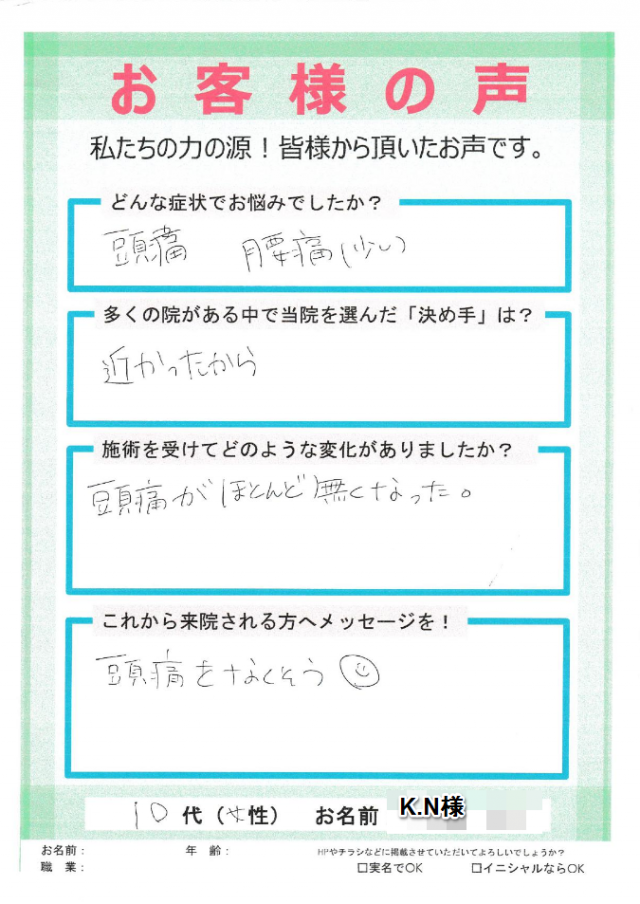 お客様の声
私たちの力の源！皆様から頂いたお声です。
どんな症状でお悩みでしたか？
頭痛　腰痛(少し)
多くの院がある中で当院を選んだ「決め手」は？
近かったから
施術を受けてどのような変化がありましたか？
頭痛がほとんど無くなった。
これから来院される方へメッセージを！
頭痛をなくそう
10代（女性）　お名前　K.N様
お名前：　年　齢：　HPやチラシなどに掲載させていただいてよろしいでしょうか？
職　業：　□実名でOK　□イニシャルならOK